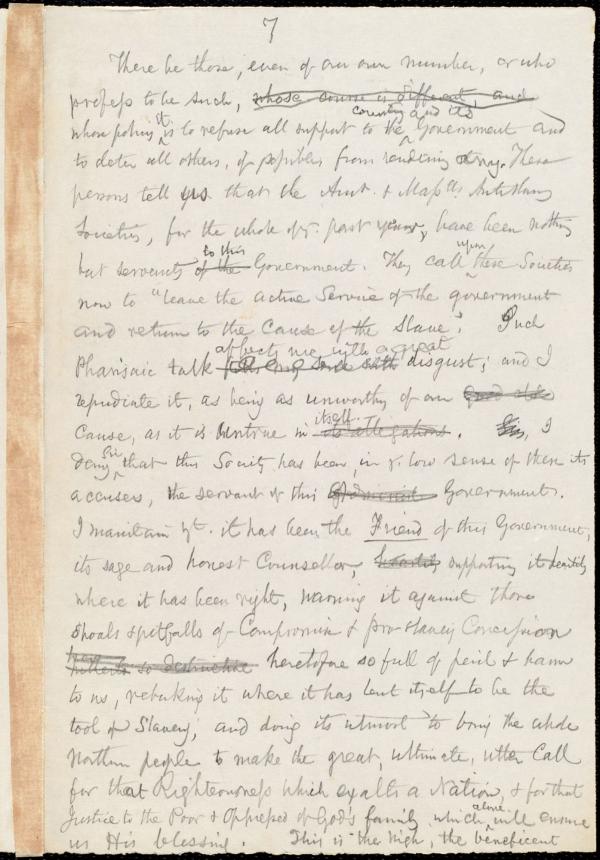 7
There be those, even of our own number, or who
profess to be such, whose course is different, and
country and its
whose policy it is to refuse all support to the Government and
to deter all others, if possible, from rendering any. These
persons tell us that the Amt. & Massts. Antislavery
Societies, for the whole of ye. past year, have been nothing
to this
but servants of the Government. They call upon these Societies
now to "leave the active Service of the government
and return to the Cause of the Slave". Such
affects me with a great
Pharisaic talk disgust; and I
repudiate it, as being as unworthy of our
itself.
Cause, as it is untrue in its allegations. Sir, I
deny, Sir, that this Society has been in ye. low sense of these its
accusers, the servant of this Government.
I maintain yt. it has been the Friend of this Government,
its sage and honest Counsellor, heartily supporting it heartily
where it has been right, warning it against those
shoals & pitfalls of Compromise & pro-slavery Concession
so destructive heretofore so full of peril & harm
to us, rebuking it where it has lent itself to be the
tool of Slavery, and doing its utmost to bring the whole
Northern people to make the great, ultimate, utter Call
for that Righteousness which exalts a Nation, & for that
Justice to the Poor & Oppressed of God's family which alone will ensure
us His blessing. This is the high, the beneficent